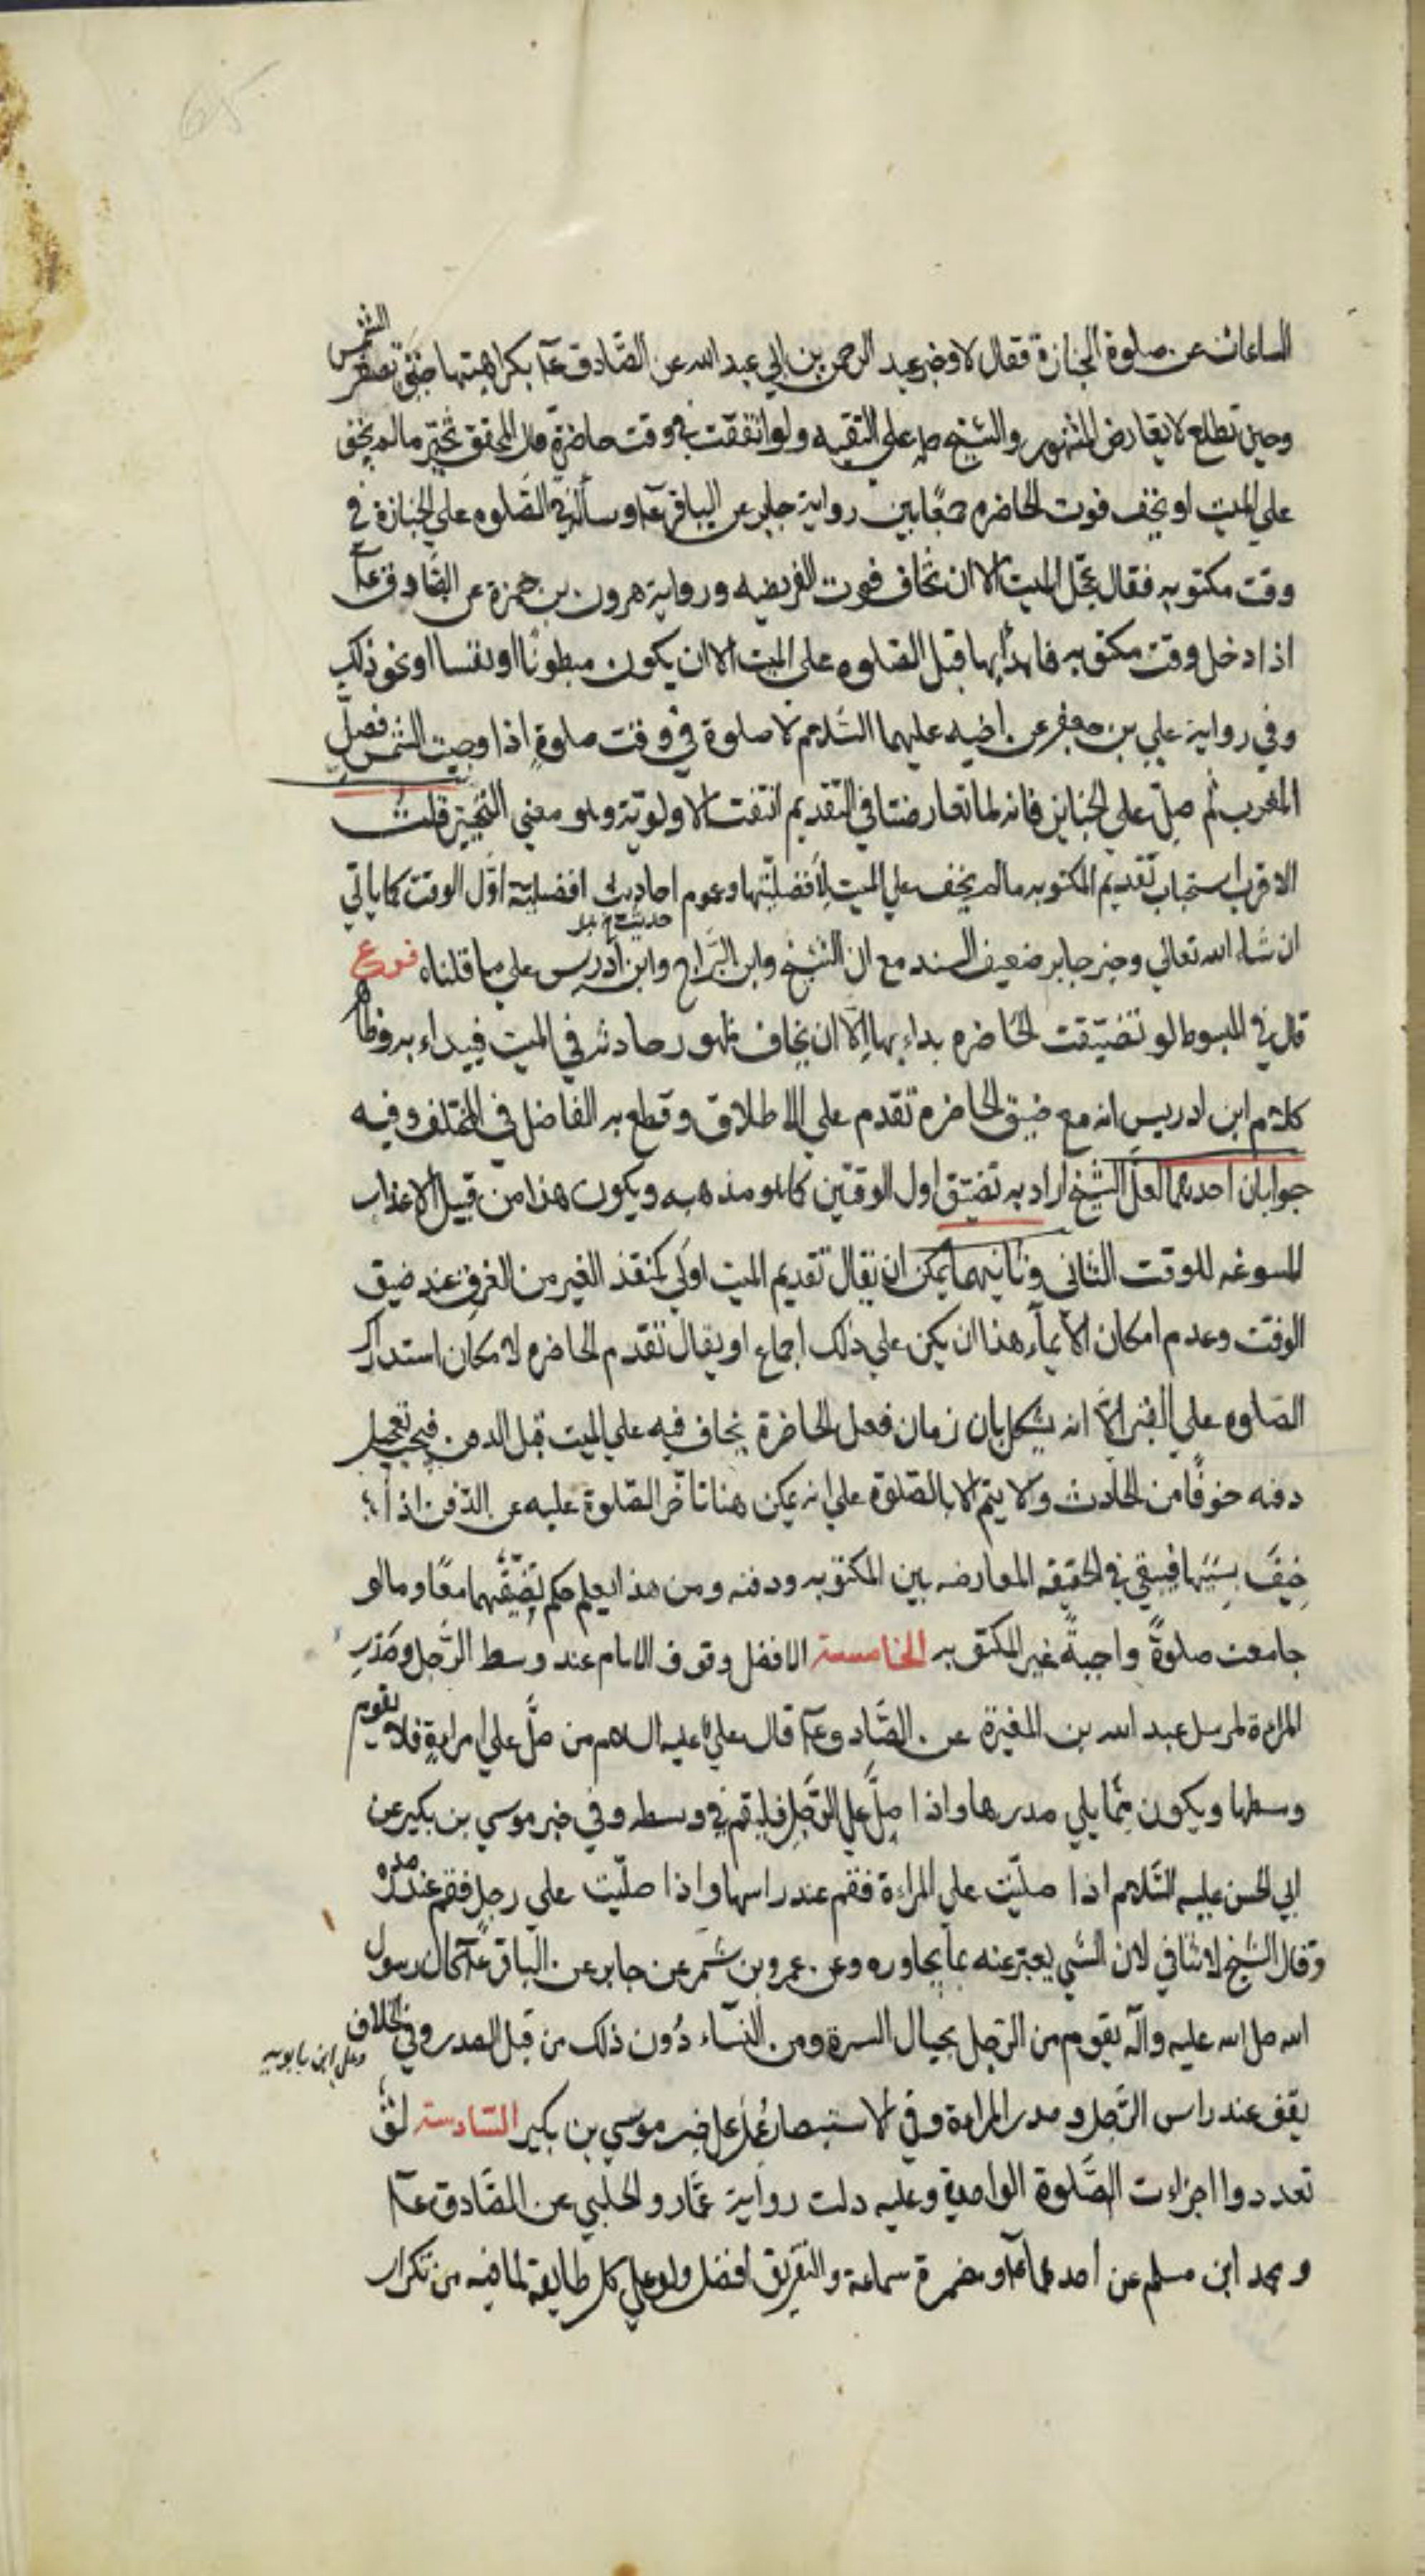 65
الساعات عن صلوة الجنازة فقال لا وخبر عبد الرحمن بن ابي عبد الله عن الصّادق عآ بكراهتها حتى تصفر الشمس
وحين تطلع لا يعارض المشهور والشيخ حمله علي التقيه ولو اتفقت في وقت حاضرة قال المحقق تخيّر ما لم يخف
علي الميت او يخف فوت الحاضره جمعًا بين رواية جابر عن الباقر عآ وسألته في الصّلوه علي الجنازة في
وقت مكتوبه فقال عجّل الميت الا ان تخاف فوت الفريضه ورواية هرون بن حمزة عن الصّادق عآ
اذا دخل وقت مكتوبه فابدأ بها قبل الصّلوه علي الميت الا ان يكون مبطونًا او نفسا او نحو ذلك
وفي رواية علي بن جعفر عن اخيه عليهما السّلام لا صلوة في وقت صلوةٍ اذا وجبت الشمس فصلّ
المغرب ثم صلّ علي الجنايز فانه لما تعارضتا في التقديم انتفت الاولويّة وهو معني التخيّر قلت
الاقرب استحباب تقديم المكتوبه ما لم يخف علي الميت لأفضليّتها وعموم احاديث افضليّة اوّل الوقت كما ياتي
ان شاء الله تعالي وخبر جابر ضعيف السند مع ان الشيخ وابن البرّاج وابن ادريس علي ما قلناه فرع
قال في المبسوط لو تضيّقت الحاضره بداء بها الّا ان يخاف ظهور حادثه في الميت فيبداء به وظاهر
كلام ابن ادريس انه مع ضيق الحاضره تقدم علي الاطلاق وقطع به الفاضل في المختلف وفيه
جوابان احدهما لعلّ الشيخ اراد به تضيّق اول الوقتين كما هو مذهبه ويكون هذا من قبيل الاعذار
المسوغه للوقت الثاني وثانيهما يمكن ان يقال تقديم الميت اولي كمنقذ الغير من الغرق عند ضيق
الوقت وعدم امكان الايمآء هذا ان يكن علي ذلك اجماع او يقال تقدّم الحاضره لامكان استدراك
الصّلوه علي القبر الّا انه يشكل بان زمان فعل الحاضرة يخاف فيه علي الميت قبل الدفن فيجب تعجيل
دفنه خوفًا من الحادث ولا يتم الا بالصّلوة علي انه يمكن هنا تاخّر الصّلوة عليه عن الدّفن اذا
خِيْفَ بسببها فيبقي في الحقيقه المعارضه بين المكتوبه ودفنه ومن هذا يعلم حكم تضيّقهما معًا وما لو
جامعت صلوةً واجبةً غير المكتوبه الخامسة الافضل وقوف الامام عند وسط الرّجل وصَدْرِ
المراءة لمرسل عبد الله بن المغيرة عن الصّادق عآ قال علي عليه السلام من صلّ علي امراءةٍ فلا يقوم
وسطها ويكون ممّا يلي صدرها واذا صلّ علي الرّجل فليقم في وسطه وفي خبر موسي بن بكير عن
ابي الحسن عليه السّلام اذا صليّت علي المراءة فقم عند راسها واذا صليّت علي رجل فقم عند صدره
وقال الشيخ لا تنافي لان الشي يعبّر عنه بما يجاوره وعن عمرو بن شمر عن جابر عن الباقر عآ كان رسول
الله صل الله عليه وآله يقوم من الرّجل بحيال السرة ومن النسآء دُون ذلك من قبل الصدر وفي الخلاف
وعلي ابن بابويه
يقف عند راس الرّجل وصدر المراءة وفي الاستبصار عُمِلَ علي خبر موسي بن بكير السّادسة لو
تعددوا اجزاءت الصّلوة الواحدة وعليه دلت رواية عمّار والحلبي عن الصّادق عآ
ومحمد ابن مسلم عن احدهما عآ ومضمرة سماعة والتفريق افضل ولو علي كل طايفة لما فيه من تكرار